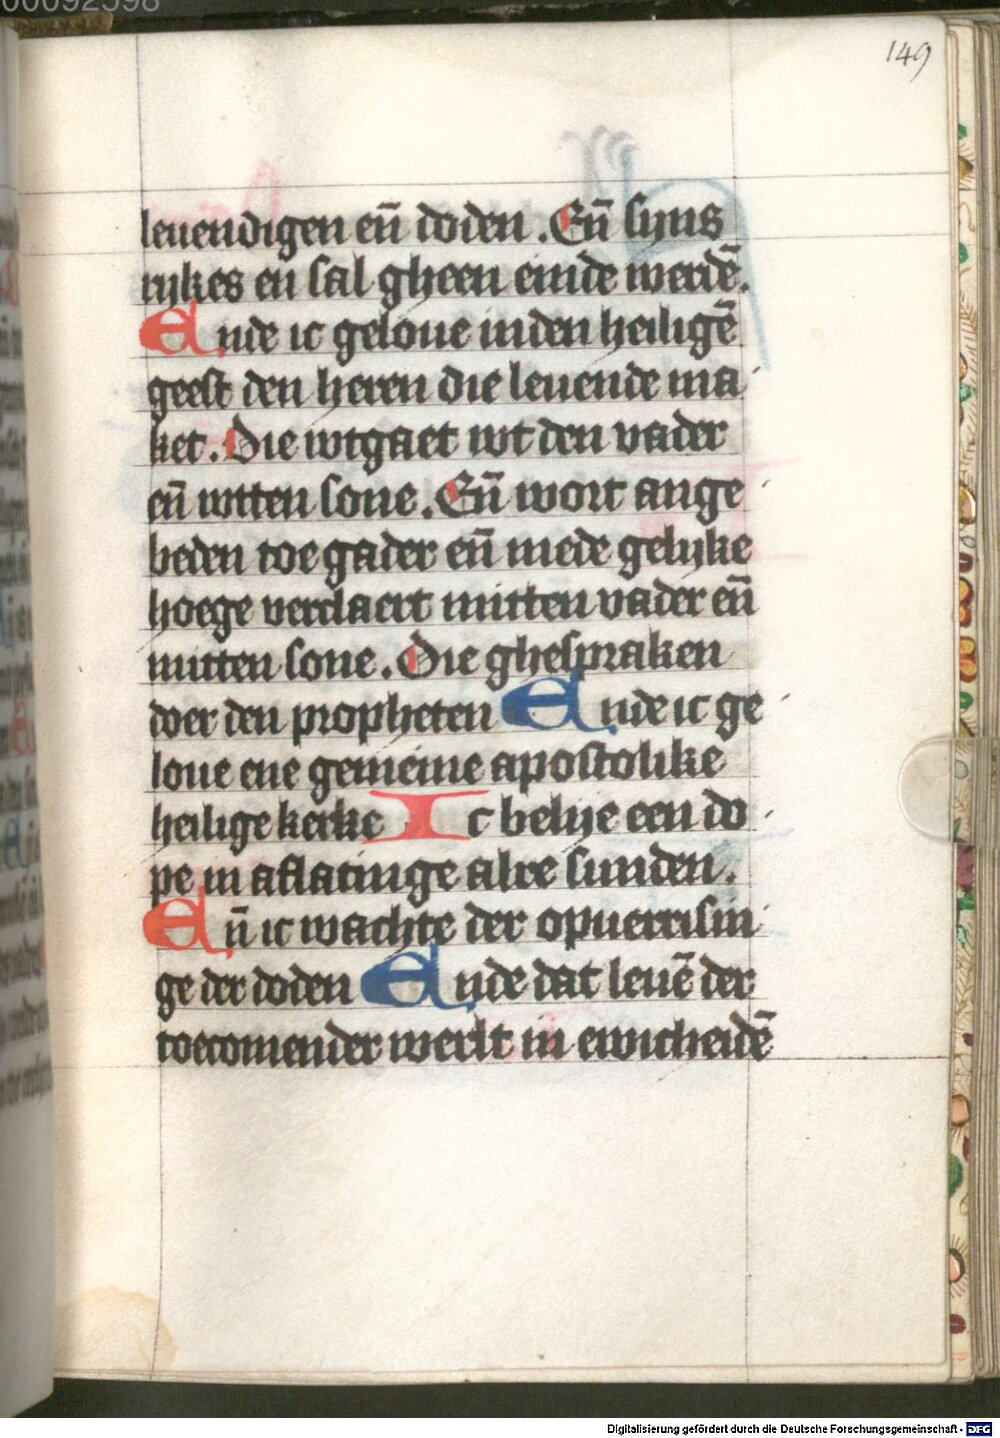 149
leuendigen en̄ doden. En̄ sijns
rijkes en sal gheen einde werdē.
Ende ic geloue inden heiligē
geest den heren die leuende ma
ket. Die wtgaet wt den vader
en̄ wtten sone. En̄ wort ange
beden toe gader en̄ mede gelijke
hoege verclaert mitten vader en̄
mitten sone. Die ghespraken
doer den propheten Ende ic ge
loue ene gemeine apostolike
heilige kerke Ic belije een do
pe in aflatinge alre sunden.
En̄ ic wachte der opuerrisin
ge der doden Ende dat leuē der
toecomender werlt in ewicheidē
Digitalisierung gefördert durch die Deutsche Forschungsgemeinschaft - DFG